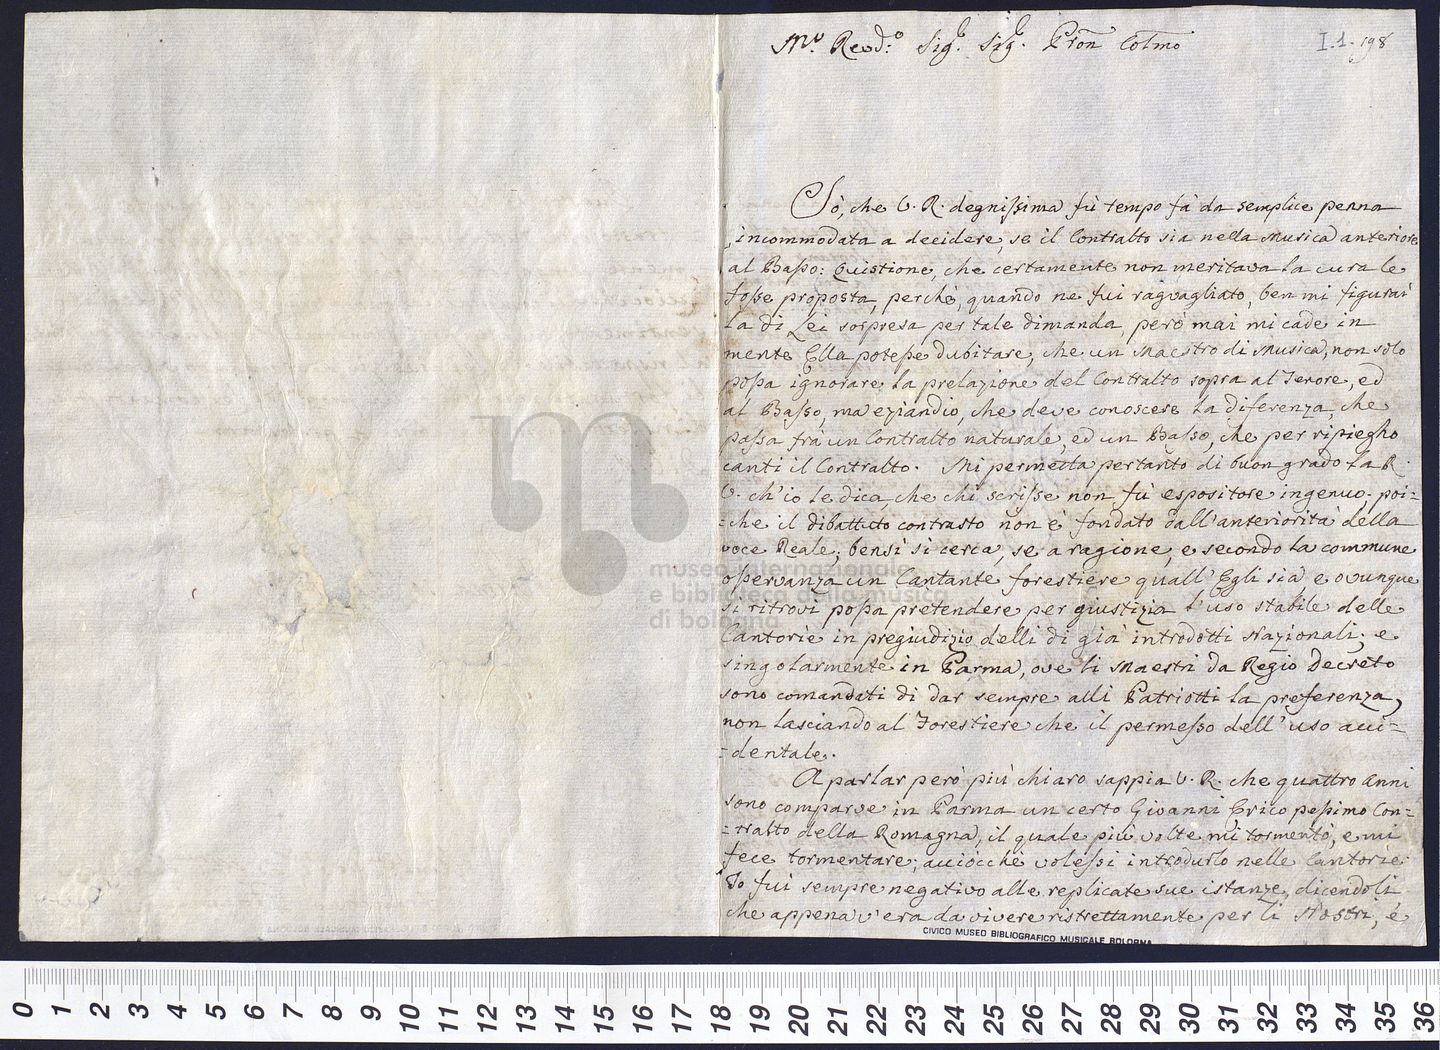 M.º Rev.d:º Sig.e Sig.e Pron Colmo
I.1.198
Sò, che V. R. degnissima fù tempo fà da semplice penna
incommodata a decidere, se il Contralto sia nella Musica anteriore
al Basso: Quistione, che certamente non meritava la cura le
fosse proposta, perchè, quando ne fui ragvagliato, ben mi figurai
la di Lei sorpresa per tale dimanda, però mai mi cade in
mente Ella potesse dubitare, che un Maestro di Musica, non solo
possa ignorare la prelazione del Contralto sopra al Tenore, ed
al Basso, ma eziandio, che deve conoscere la diferenza, che
passa frà un Contralto naturale, ed un Basso, che per ripiegho
canti il Contralto. Mi permetta pertanto di buon grado la R.
V. ch'io le dica, che chi scrisse non fù espositore ingenuo, poi=
=che il dibattuto contrasto non è fondato dall'anteriorità della
voce Reale; bensì si cerca, se a ragione, e secondo la commune
osservanza un Cantante forestiere quall'Egli sia e ovunque
si ritrovi possa pretendere per giustizia l'uso stabile delle
Cantorie in pregiudizio delli di già introdotti Nazionali; e
singolarmente in Parma, ove li Maestri da Regio Decreto
sono comandati di dar sempre alli Patriotti la preferenza,
non lasciando al Forestiere che il permesso dell'uso acci=
=dentale.
A parlar però più chiaro sappia V. R. che quattro Anni
sono comparve in Parma un certo Giovanni Erico pessimo Con=
=tralto della Romagna, il quale più volte mi tormentò, e mi
fece tormentare; acciocchè volessi introdurlo nelle Cantorie:
Io fui sempre negativo alle replicate sue istanze, dicendoli
che appena v'era da vivere ristrettamente per li Nostri, è
CIVICO MUSEO BIBLIOGRAFICO MUSICALE BOLOGNA
museo internazionale
e biblioteca della musica
di bologna
0 1 2 3 4 5 6 7 8 9 10 11 12 13 14 15 16 17 18 19 20 21 22 23 24 25 26 27 28 29 30 31 32 33 34 35 36